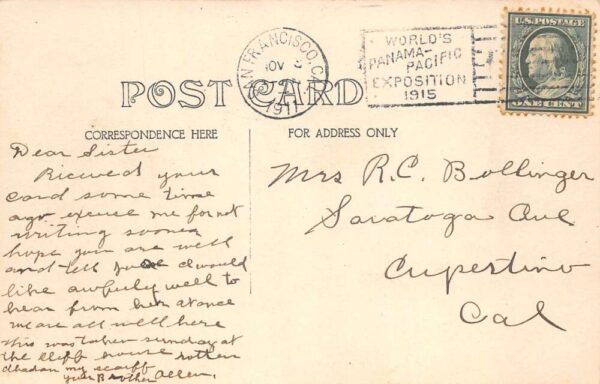 SAN FRANCISCO, CAL.
NOV
1911
WORLD'S
PANAMA-
PACIFIC
EXPOSITION
1915
U.S. POSTAGE
ONE CENT
POST CARD
CORRESPONDENCE HERE
FOR ADDRESS ONLY
Dear Sister
Recieved your
card some time
ago excuse me for not
writing sooner
hope you are well
and tell I would
like awfuly well to
hear from her at once
we are all well here
this was taken sunday at
the Cliff house rotten
my scarff
your Brother Allen,
Mrs R.C. Bollinger
Saratoga Ave
Cupertino
Cal